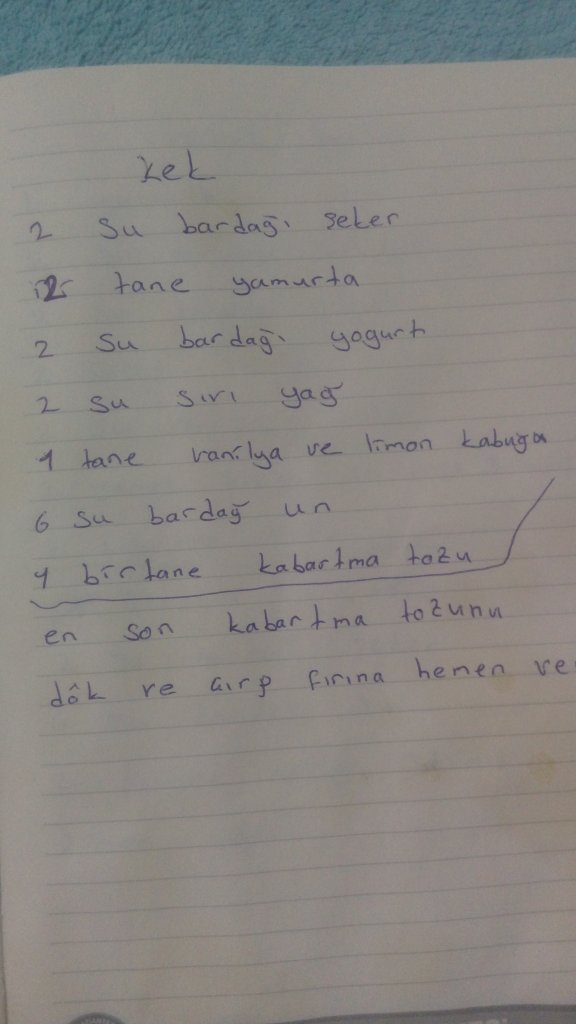 kek
2 su bardağı şeker
2 tane yamurta
2 su bardağı yogurt
2 su sıvı yağ
1 tane vanilya ve limon kabuğu
6 su bardağ un
1 birtane kabartma tozu
en son kabartma tozunu
dôk ve çırp fırına hemen ve